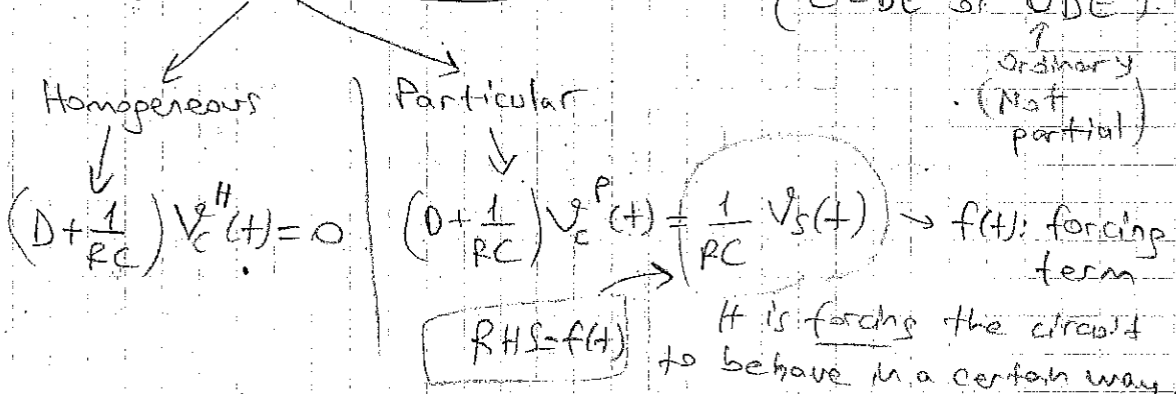 or ODE)
Ordinary
(Not
partial)
Homogeneous
Particular
(D + 1/RC) V_C^H(t) = 0
(D + 1/RC) V_C^P(t) = 1/RC V_S(t) → f(t): forcing
term
RHS=f(t)
It is forcing the circuit
to behave in a certain way